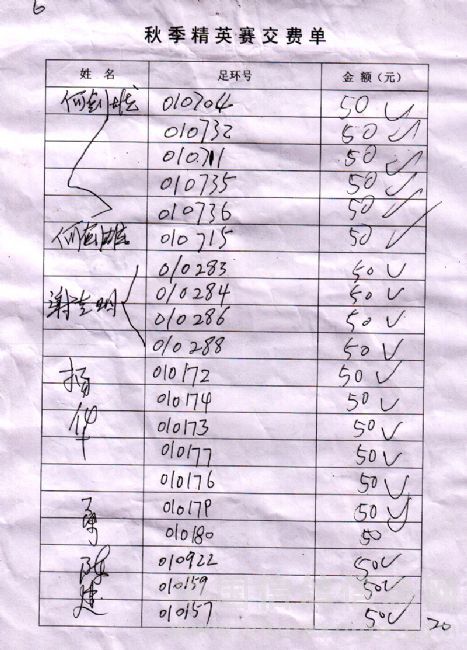 6
秋季精英赛交费单
姓 名 足环号 金 额（元）
010704 50
010732 50
010711 50
010735 50
010736 50
010715 50
010283 50
010284 50
谢 明 010286 50
010288 50
杨 010172 50
010174 50
华 010173 50
010177 50
010176 50
50
010180 50
陈 010922 50
010159 50
建 010157 50
20